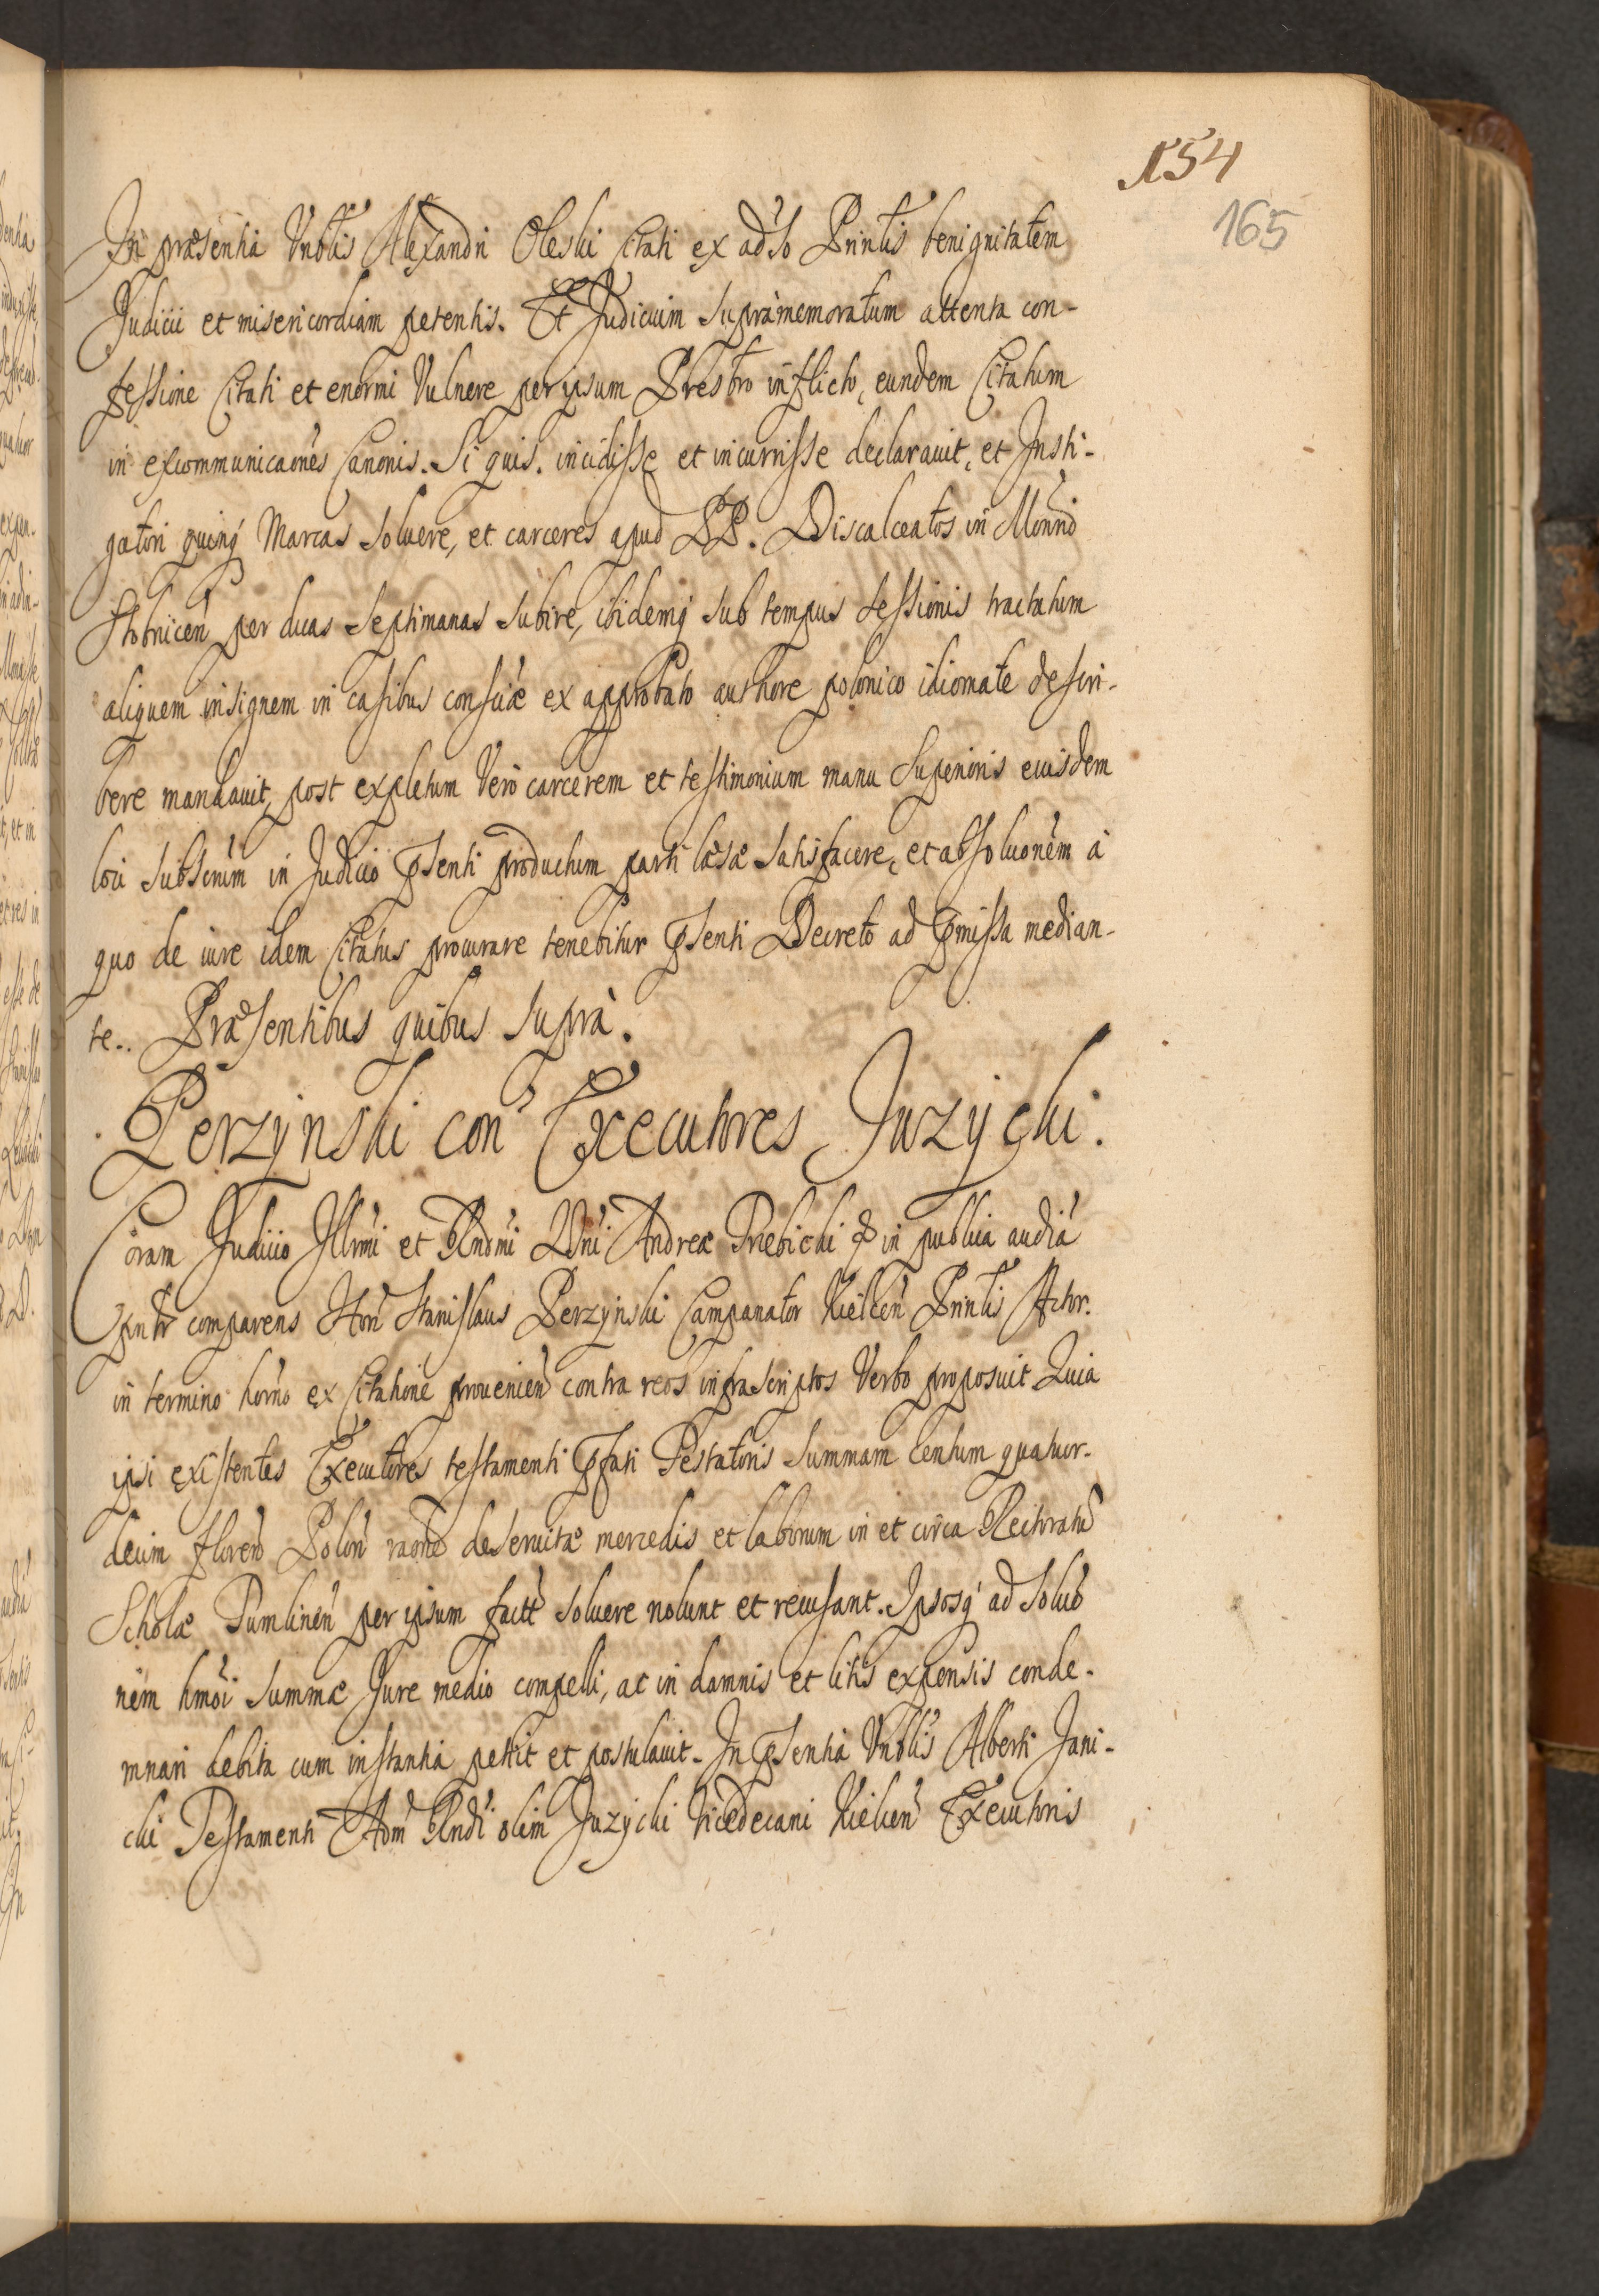 154
165
In præsentia Vnoblis Alexandri Oleski Citati ex adũso Prīntis benignitatem
Judicii et misericordiam petentis. Et Judicium supràmemoratum attenta con-
fessione Citati et enormi Vulnere per ipsum Presbro inflicto, eundem Citatum
in excommunicaōnes Canonis. Si quis. incidisse et incurrisse declarauit, et Insti-
gatori quinq́ Marcas soluere, et carceres apud PP. Discalceatos in Monrio
Stobnicen̄ per duas septimanas subire, ibidemq́ sub tempus sessionis tractatum
aliquem insignem in casibus consciæ ex approbato authore polonico idiomate descri-
bere mandauit, post expletum Verò carcerem et testimonium manu Superioris eiusdem
loci subscrũm in Judicio p̃senti productum parti læsæ satisfacere, et absoluōnem à
quo de iure idem Citatus procurare tenebitur p̃senti Decreto ad p̃missa median-
te.. Præsentibus quibus suprà.
Perzynski con̄ Executores Juzycki.
Coram Judicio Illrm̃i et Rndm̃i Dn̄i Andreæ Trebicki & in publica audīa
p̃ntr comparens Hon̄ Stanislaus Perzynski Campanator Kielcen̄ Prīntis Actor.
in termino horno ex Citatione prouenien̄ contra reos infrascriptos Verbo proposuit Quia
ipsi existentes Executores testamenti p̃fati Testatoris summam Centum quatuor-
decim floren̄ Polon̄ raōne deseruitæ mercedis et laborum in et circa Rectoratū
Scholæ Tumlinen̄ per ipsum fact̄ soluere nolunt et recusant. Ipsosq́ ad soluō
nēm hmōi summæ Jure medio compelli, ac in damnis et litis expensis conde-
mnari debita cum instantia petiit et postulauit. In p̃sentia Vnoblis Alberti Jani-
cki Testamenti Adm̄ Rndi olim Juzycki Vicedecani Kielcen̄ Executoris